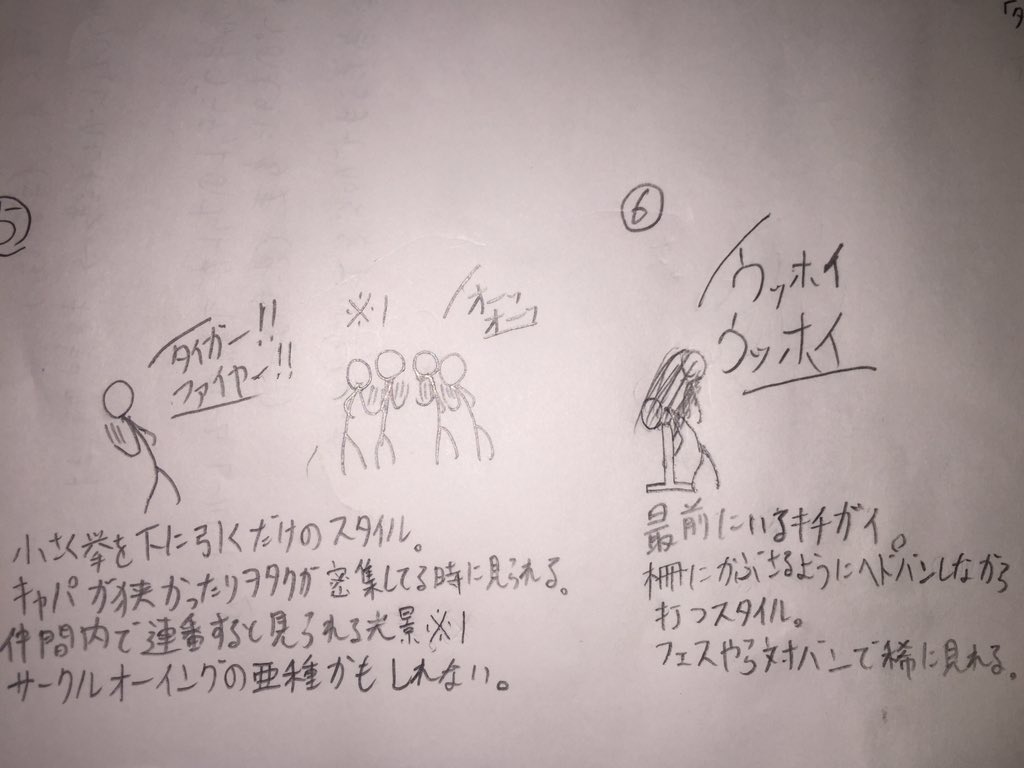 「タ
⑤
タイガー!!
ファイヤー!!
※1
オーッ
オーッ
小さく拳を下に引くだけのスタイル。
キャパが狭かったりヲタクが密集してる時に見られる。
仲間内で連番すると見られる光景※1
サークルオーイングの亜種かもしれない。
⑥
ウッホイ
ウッホイ
最前にいるキチガイ。
柵にかぶさるようにヘドバンしながら
打つスタイル。
フェスやら対バンで稀に見れる。